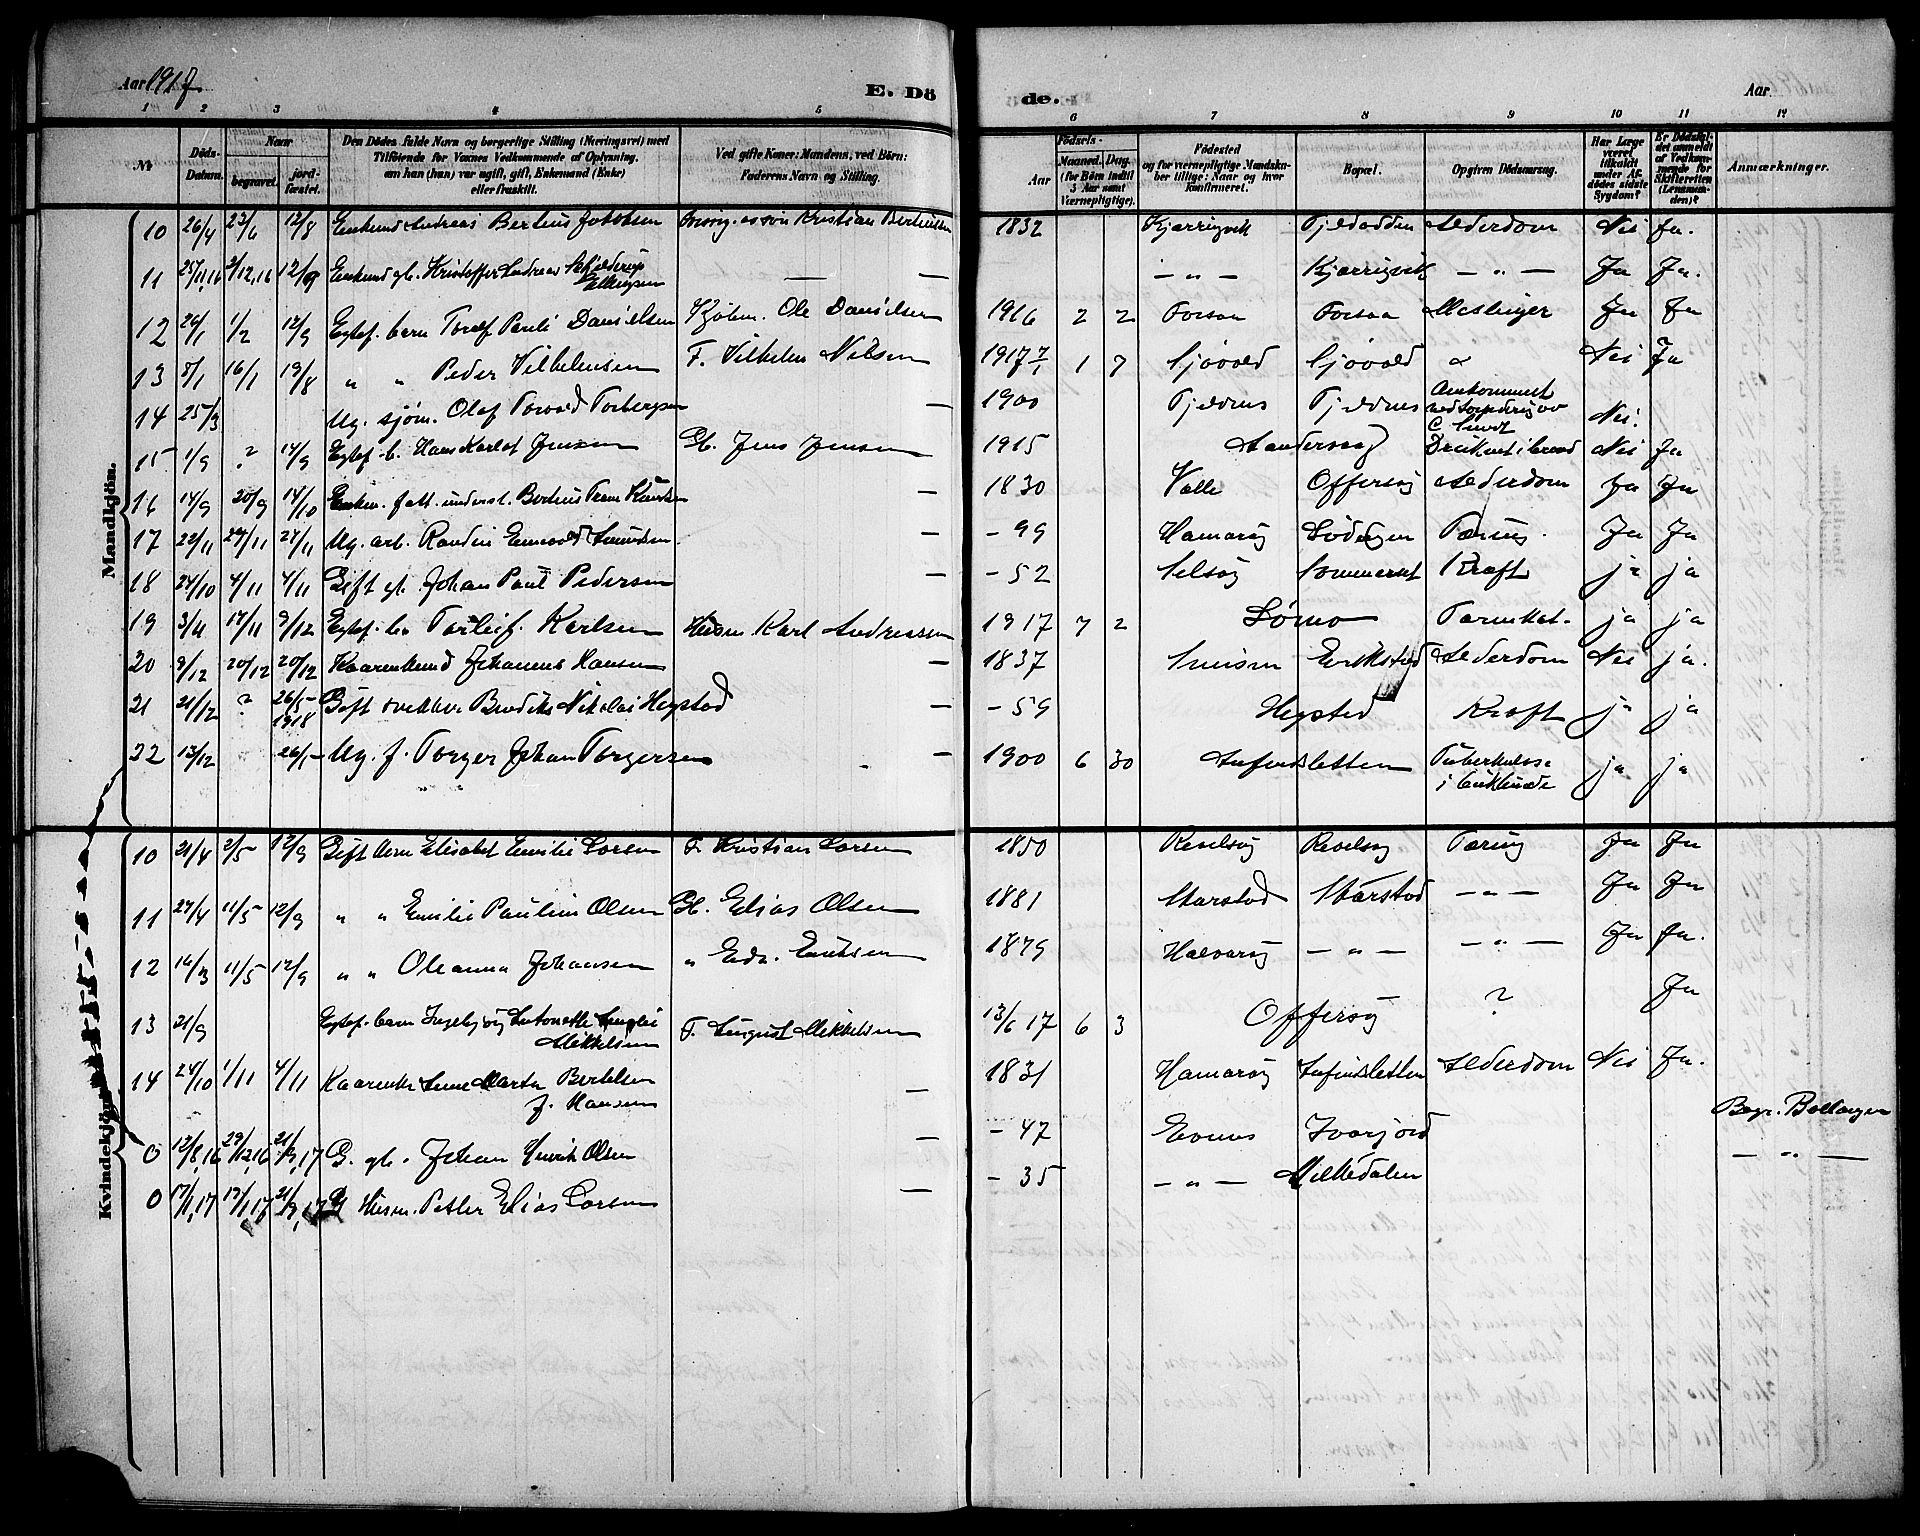 Aar 1917. E. Dö de. Aar
1 2 3 4 5 6 7 8 9 10 11 12
№ Döds-Datum. Naar begravet. jord-fæstet. Den Dödes fulde Navn og borgerlige Stilling (Næringsvei) med Tilföiende for Voxnes Vedkommende af Oplysning, om han (hun) var ugift, gift, Enkemand (Enke) eller fraskilt. Ved gifte Koner: Mandens, ved Börn: Faderens Navn og Stilling. Födsels- Aar Maaned. Dag. (for Börn indtil 3 Aar samt Værnepligtige). Födested og for værnepligtige Mandskaber tillige: Naar og hvor konfirmeret. Bopæl. Opgiven Dödsaarsag. Har Læge været tilkaldt under Afdödes sidste Sygdom? Er Dödsfaldet anmeldt af Vedkommende for Skifteretten (Lensmanden)? Anmærkninger.
Mandkjön.
10 26/4 12/8 Enkemd Andreas Bertius Jakobsen Kristian Berthinsen 1832 Kjærringvik Tjeldodden Alderdom Nei Ja.
11 25/11,16 2/12,16 12/9 Enkemd gb. Kristoffer Andreas Schjelderup Ellingsen — — " — Kjærringvik — " — Ja Ja.
12 26/1 1/2 12/9 Egtef. barn Toralf Pauli Danielsen Kjøbm. Ole Danielsen 1916 2 2 Forsaa Forsaa Meslinger Ja Ja
13 8/1 16/1 19/8 " " Peder Vilhelmsen F. Vilhelm Nilsen 1917 7/1 1 7 Sjøvold Sjøvold " Nei Ja
14 25/3 Ug. sjøm. Olaf Torvald Torbergsen — 1900 Tjeldnes Tjeldnes Omkommet ved torpedering av Nei.
15 1/9 ? 14/9 Egtef. b. Hans Karlot Jensen Gb. Jens Jensen 1915 Sandersaag Druknet i brønd Nei Ja
16 14/9 20/9 14/10 Enkem. fatt. underst. Bertius Trane — 1830 Valle Offersøy Alderdom Ja Ja
17 22/11 29/11 24/11 Ug. arb. Randin Enevold Amundsen. — - 99 Hamarøy Lødingen Tæring. Ja Ja
18 24/10 4/11 4/11 Gift gb. Johan Paul Pedersen — - 52 Selsøy Sommerset Kræft ja ja
19 3/11 17/11 9/12 Egtef. bar Torleif. Karlsen Husm. Karl Andreassen 1917 7 2 Sømo Tarmkat. ja ja
20 9/12 20/12 20/12 Kaarenkemd Johannes Hansen — 1837 Evikstad Alderdom Nei ja.
21 21/12 ? 26/5-1918 Gift Nikolai Hegstad — - 59 Hegstad Kræft ja ja
22 13/12 26/1- Ug. f. Torger Johan Torgersen — 1900 6 30 Anfindsletten Tuberkulose ja ja
Kvindekjön.
10 21/4 2/5 12/9 Gift Anne Elisabet Emilie Larsen F. Kristian Larsen 1850 Revelsøy Revelsøy Tæring Ja Ja
11 27/4 11/5 12/9 " " Emilie Pauline Olsen Gb. Elias Olsen 1881 Skarstad Skarstad — " — Ja Ja
12 14/3 11/5 12/9 " " Oleanna Johansen " Edv. Eriksen 1879 Halvarøy — " — — " — Ja Ja.
13 21/9 Egtef. barn Ingebjørg Antonette Mikkelsen F. August Mikkelsen 13/6 17 6 3 Offersøy ? Ja
14 24/10 1/11 4/11 Kaarenke Anne Marta Bertelsen f. Hansen — 1831 Hamarøy Anfindsletten Alderdom Nei Ja.
0 12/8,16 29/12,16 21/9,17 G. gb. Johan Henrik Olsen — - 47 Evenes Ivarjord Begr. Ballangen
0 17/1,17 21/9,17 G Husm. Petter Elias Larsen — - 35 — " — Melkedalen — " —